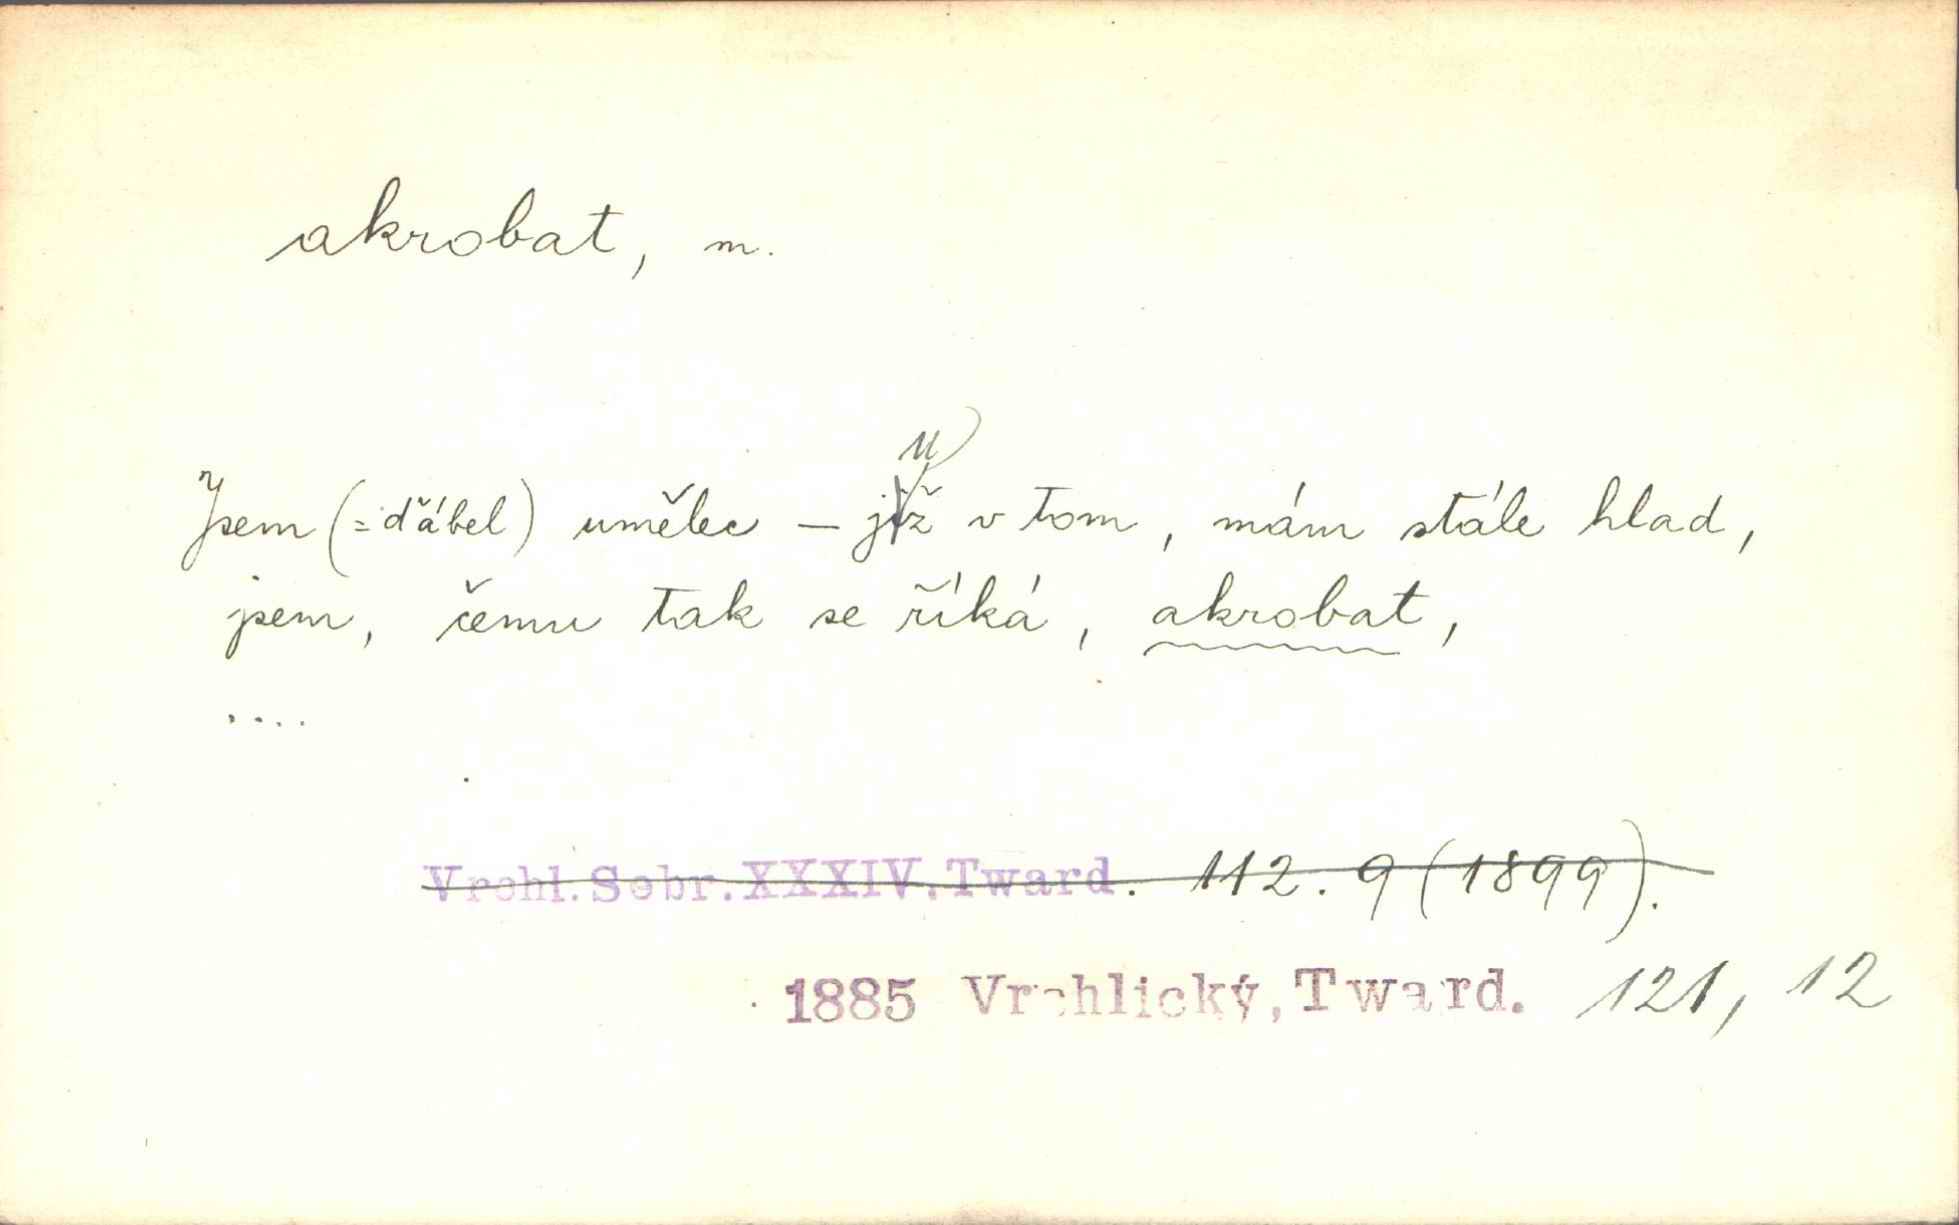 akrobat, m.
Jsem (= ďábel) umělec – juž v tom, mám stále hlad,
jsem, čemu tak se říká, akrobat,
....
Vrchl. Sebr. XXXIV, Tward. 112. 9 (1899).
1885 Vrchlický, Tward. 121, 12